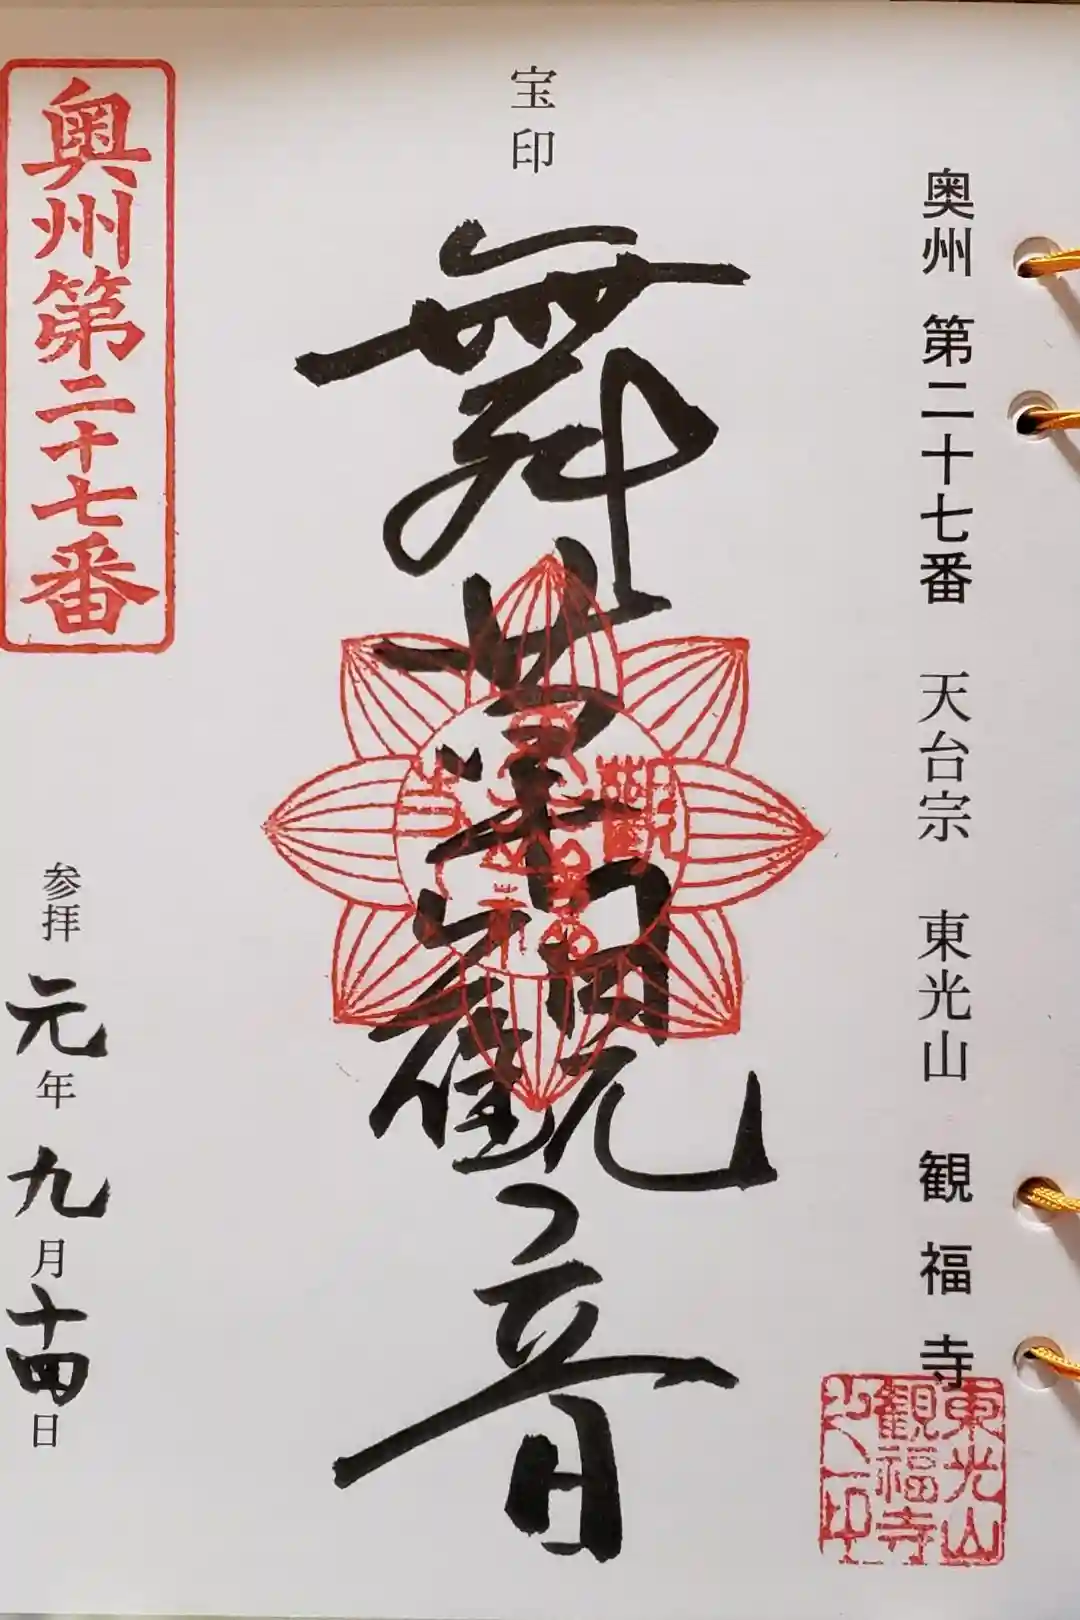 奥州 第二十七番 天台宗 東光山 観福寺
東光山
観福寺
之印
宝印
舞草観音
奥州第二十七番
参拝 元年 九月十四日